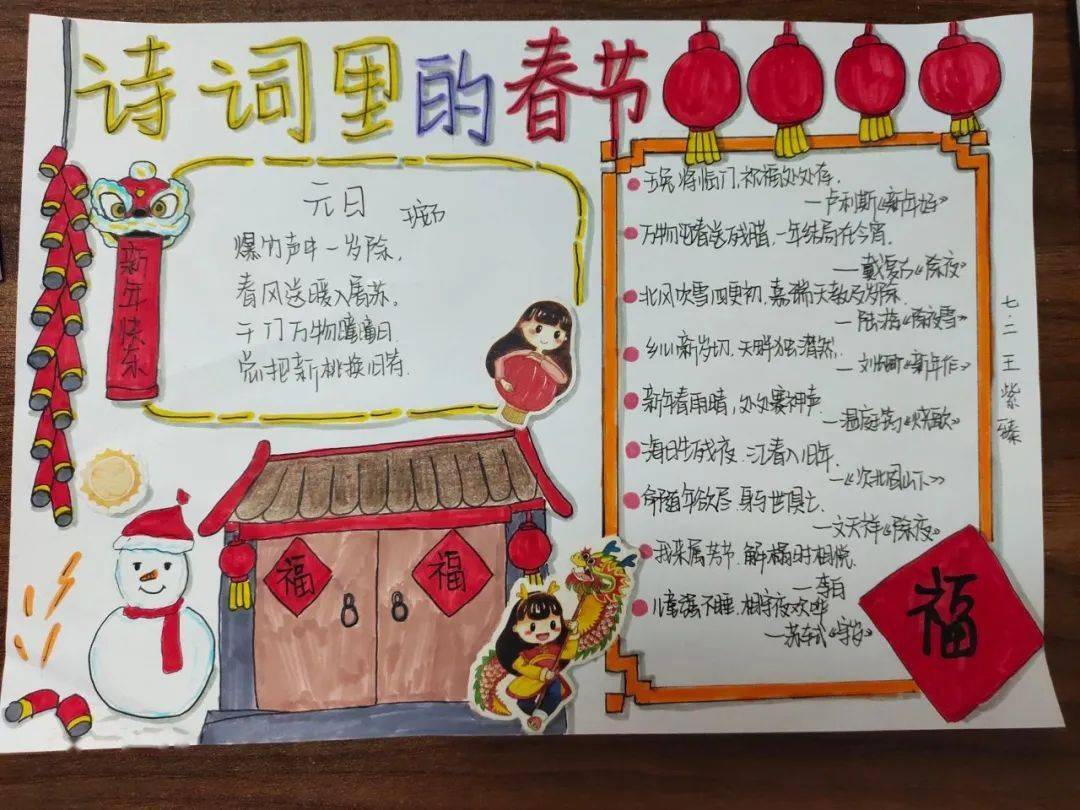 诗词里的春节
新年快乐
元日
王安石
爆竹声中一岁除,
春风送暖入屠苏。
千门万物曈曈日
总把新桃换旧符.
玉兔将临门,祝福处处存.
—卢利斯《新年好》
万物迎春送残腊,一年结局在今宵.
—戴复古《除夜》
北风吹雪四更初,嘉瑞天教及岁除.
—陆游《除夜雪》
乡心新岁切,天畔独潸然.
—刘长卿《新年作》
新年春雨晴,处处赛神声.
—温庭筠《烧歌》
海日生残夜,江春入旧年.
—《次北固山下》
命随年欲尽,身与世俱亡
—文天祥《除夜》
我来属芳节,解榻时相悦.
—李白
儿童强不睡,相守夜欢哗
—苏轼《守岁》
七.二 王紫臻
福
福
福